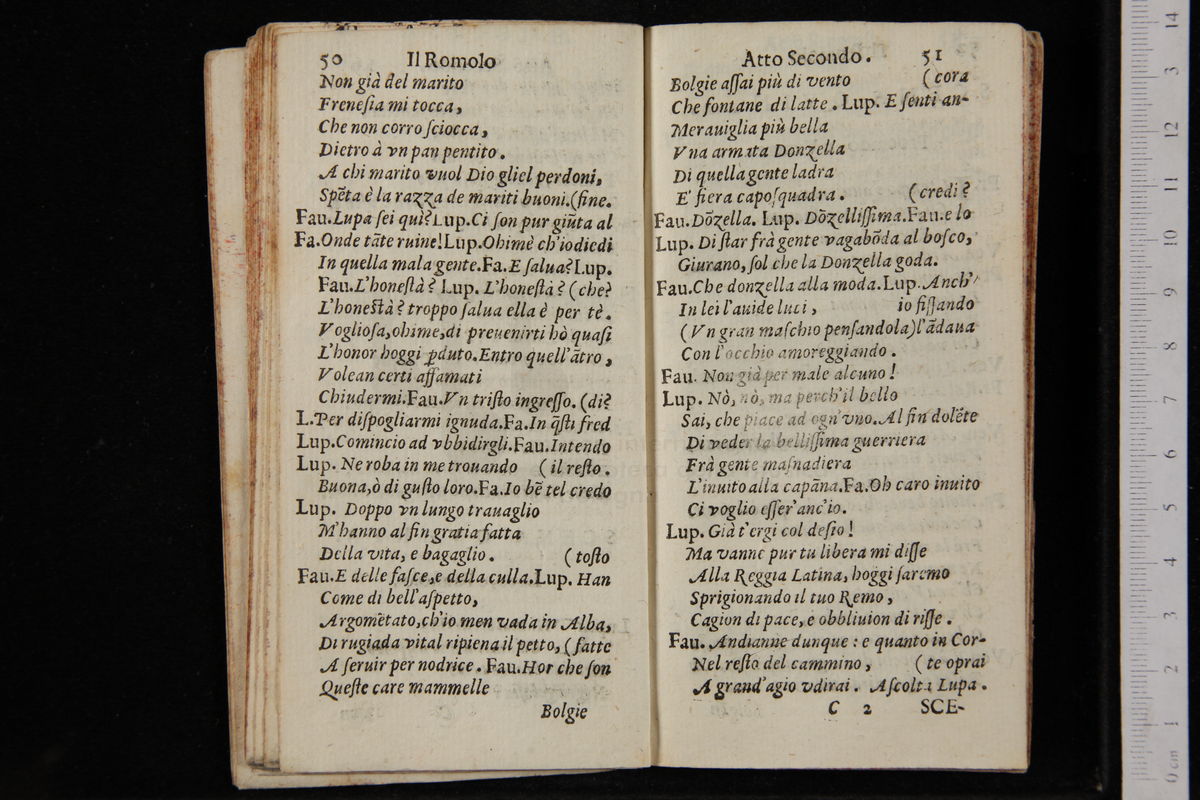 50 Il Romolo
Non già del marito
Frenesia mi tocca,
Che non corro sciocca,
Dietro à vn pan pentito.
A chi marito vuol Dio gliel perdoni,
Spẽta è la razza de mariti buoni.(fine.
Fau.Lupa sei qui?Lup.Ci son pur giũta al
Fa.Onde tãte ruine!Lup.Ohimè ch'io diedi
In quella mala gente.Fa.E salua?Lup.
Fau.L'honestà? Lup. L'honestà? (che?
L'honestà? troppo salua ella è per tè.
Vogliosa,ohime,di preuenirti hò quasi
L'honor hoggi ꝑduto.Entro quell'ãtro,
Volean certi affamati
Chiudermi.Fau.Vn tristo ingresso. (di?
L.Per dispogliarmi ignuda.Fa.In q̃sti fred
Lup.Comincio ad vbbidirgli.Fau.Intendo
Lup. Ne roba in me trouando (il resto.
Buona,ò di gusto loro.Fa.Io bẽ tel credo
Lup. Doppo vn lungo trauaglio
M'hanno al fin gratia fatta
Della vita, e bagaglio. (tosto
Fau.E delle fasce,e della culla.Lup. Han
Come di bell'aspetto,
Argomẽtato,ch'io men vada in Alba,
Di rugiada vital ripiena il petto, (fatte
A seruir per nodrice. Fau.Hor che son
Queste care mammelle
Bolgie
Atto Secondo. 51
Bolgie assai più di vento (cora
Che fontane di latte. Lup. E senti an-
Merauiglia più bella
Vna armata Donzella
Di quella gente ladra
E' fiera caposquadra. (credi?
Fau. Dõzella. Lup. Dõzellissima.Fau.e lo
Lup. Di star frà gente vagabõda al bosco,
Giurano, sol che la Donzella goda.
Fau.Che donzella alla moda.Lup. Anch'
In lei l'auide luci, io fissando
(Vn gran maschio pensandola)l'ãdaua
Con l'occhio amoreggiando.
Fau. Non già per male alcuno!
Lup. Nò, nò, ma perch'il bello
Sai, che piace ad ogn'vno.Al fin dolẽte
Di veder la bellissima guerriera
Frà gente masnadiera
L'inuito alla capãna.Fa.Oh caro inuito
Ci voglio esser'anc'io.
Lup. Già t'ergi col desio!
Ma vanne pur tu libera mi disse
Alla Reggia Latina, hoggi saremo
Sprigionando il tuo Remo,
Cagion di pace, e obbliuion di risse.
Fau. Andianne dunque: e quanto in Cor-
Nel resto del cammino, (te oprai
A grand'agio vdirai. Ascolta Lupa.
C 2 SCE-
14
3
12
11
10
9
8
7
6
5
4
3
2
1
0 cm